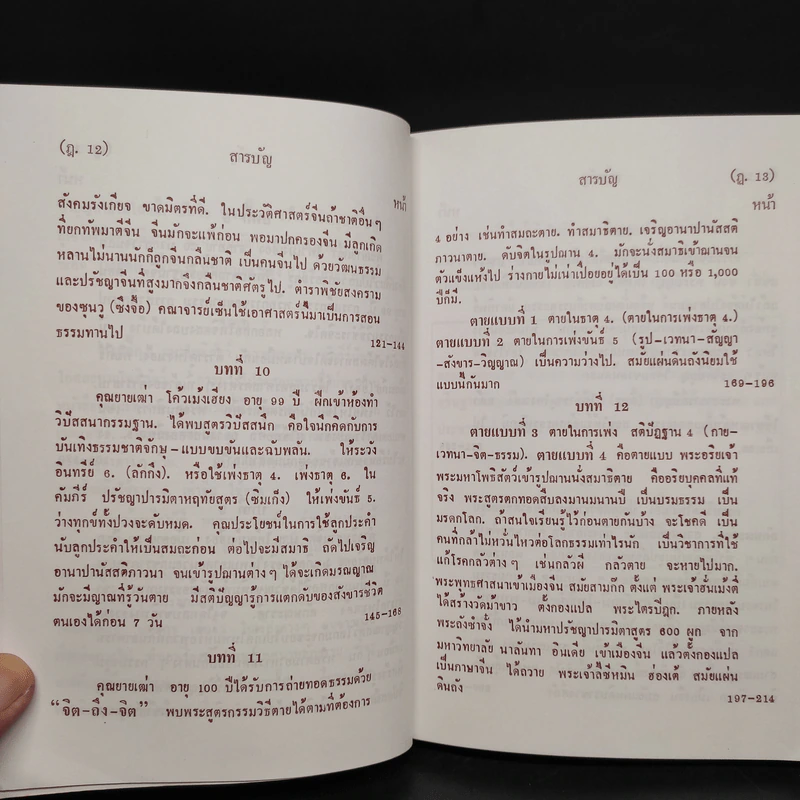 (ฎ. 12)
สารบัญ
หน้า
สังคมรังเกียจ ขาดมิตรที่ดี. ในประวัติศาสตร์จีนถ้าชาติอื่นๆ
ที่ยกทัพมาตีจีน จีนมักจะแพ้ก่อน พอมาปกครองจีน มีลูกเกิด
หลานไม่นานนักก็ถูกจีนกลืนชาติ เป็นคนจีนไป ด้วยวัฒนธรรม
และปรัชญาจีนที่สูงมากจึงกลืนชาติศัตรูไป. ตำราพิชัยสงคราม
ของซุนวู (ซึงจื้อ) คณาจารย์เซ็นใช้เอาศาสตร์นี้มาเป็นการสอน
ธรรมทานไป
121-144
บทที่ 10
คุณยายเฒ่า โค้วเม้งเฮียง อายุ 99 ปี ฝึกเข้าห้องทำ
วิปัสสนากรรมฐาน. ได้พบสูตรวิปัสสนึก คือใจนึกคิดกับการ
บันเทิงธรรมชาติจักษุ-แบบขบขันและฉับพลัน. ให้ระวัง
อินทรีย์ 6. (ลักกึง). หรือใช้เพ่งธาตุ 4. เพ่งธาตุ 6. ใน
คัมภีร์ ปรัชญาปารมิตาหฤทัยสูตร (ซิมเก็ง) ให้เพ่งขันธ์ 5.
ว่างทุกข์ทั้งปวงจะดับหมด. คุณประโยชน์ในการใช้ลูกประคำ
นับลูกประคำให้เป็นสมถะก่อน ต่อไปจะมีสมาธิ ถัดไปเจริญ
อานาปานัสสติภาวนา จนเข้ารูปฌานต่างๆ ได้จะเกิดมรณญาณ
มักจะมีญาณที่รู้วันตาย มีสติปัญญารู้การแตกดับของสังขารชีวิต
ตนเองได้ก่อน 7 วัน
145-168
บทที่ 11
คุณยายเฒ่า อายุ 100 ปีได้รับการถ่ายทอดธรรมด้วย
“จิต-ถึง-จิต” พบพระสูตรกรรมวิธีตายได้ตามที่ต้องการ
สารบัญ
(ฎ. 13)
หน้า
4 อย่าง เช่นทำสมถะตาย. ทำสมาธิตาย. เจริญอานาปานัสสติ
ภาวนาตาย. ดับจิตในรูปฌาน 4. มักจะนั่งสมาธิเข้าฌานจน
ตัวแข็งแห้งไป ร่างกายไม่เน่าเปื่อยอยู่ได้เป็น 100 หรือ 1,000
ปีก็มี.
ตายแบบที่ 1 ตายในธาตุ 4. (ตายในการเพ่งธาตุ 4.)
ตายแบบที่ 2 ตายในการเพ่งขันธ์ 5 (รูป-เวทนา-สัญญา
-สังขาร-วิญญาณ) เป็นความว่างไป. สมัยแผ่นดินถังนิยมใช้
แบบนี้กันมาก
169-196
บทที่ 12
ตายแบบที่ 3 ตายในการเพ่ง สติปัฏฐาน 4 (กาย-
เวทนา-จิต-ธรรม). ตายแบบที่ 4 คือตายแบบ พระอริยเจ้า
พระมหาโพธิสัตว์เข้ารูปฌานนั่งสมาธิตาย คืออริยบุคคลที่แท้
จริง พระสูตรตกทอดสืบลงมานมนานปี เป็นบรมธรรม เป็น
มรดกโลก. ถ้าสนใจเรียนรู้ไว้ก่อนตายกันบ้าง จะโชคดี เป็น
คนที่กล้าไม่หวั่นไหวต่อโลกธรรมเท่าไรนัก เป็นวิชาการที่ใช้
แก้โรคกลัวต่างๆ เช่นกลัวผี กลัวตาย จะหายไปมาก.
พระพุทธศาสนาเข้าเมืองจีน สมัยสามก๊ก ตั้งแต่ พระเจ้าฮั่นเม้งตี่
ได้สร้างวัดม้าขาว ตั้งกองแปล พระไตรปิฎก. ภายหลัง
พระถังซำจั๋ง ได้นำมหาปรัชญาปารมิตาสูตร 600 ผูก จาก
มหาวิทยาลัย นาลันทา อินเดีย เข้าเมืองจีน แล้วตั้งกองแปล
เป็นภาษาจีน ได้ถวาย พระเจ้าลี้ซีหมิน ฮ่องเต้ สมัยแผ่น
ดินถัง
197-214